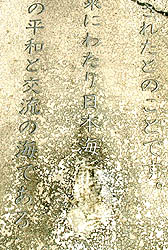 されたとのことです
来にわたり日本海
の平和と交流の海である